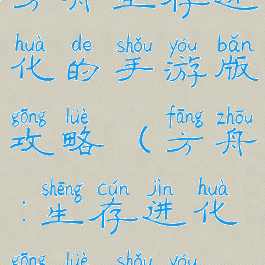 huà de shǒu yóu bǎn
化的手游版
gōng lüè fāng zhōu
攻略(方舟
shēng cún jìn huà
:生存进化
gōng lüè shǒu yóu